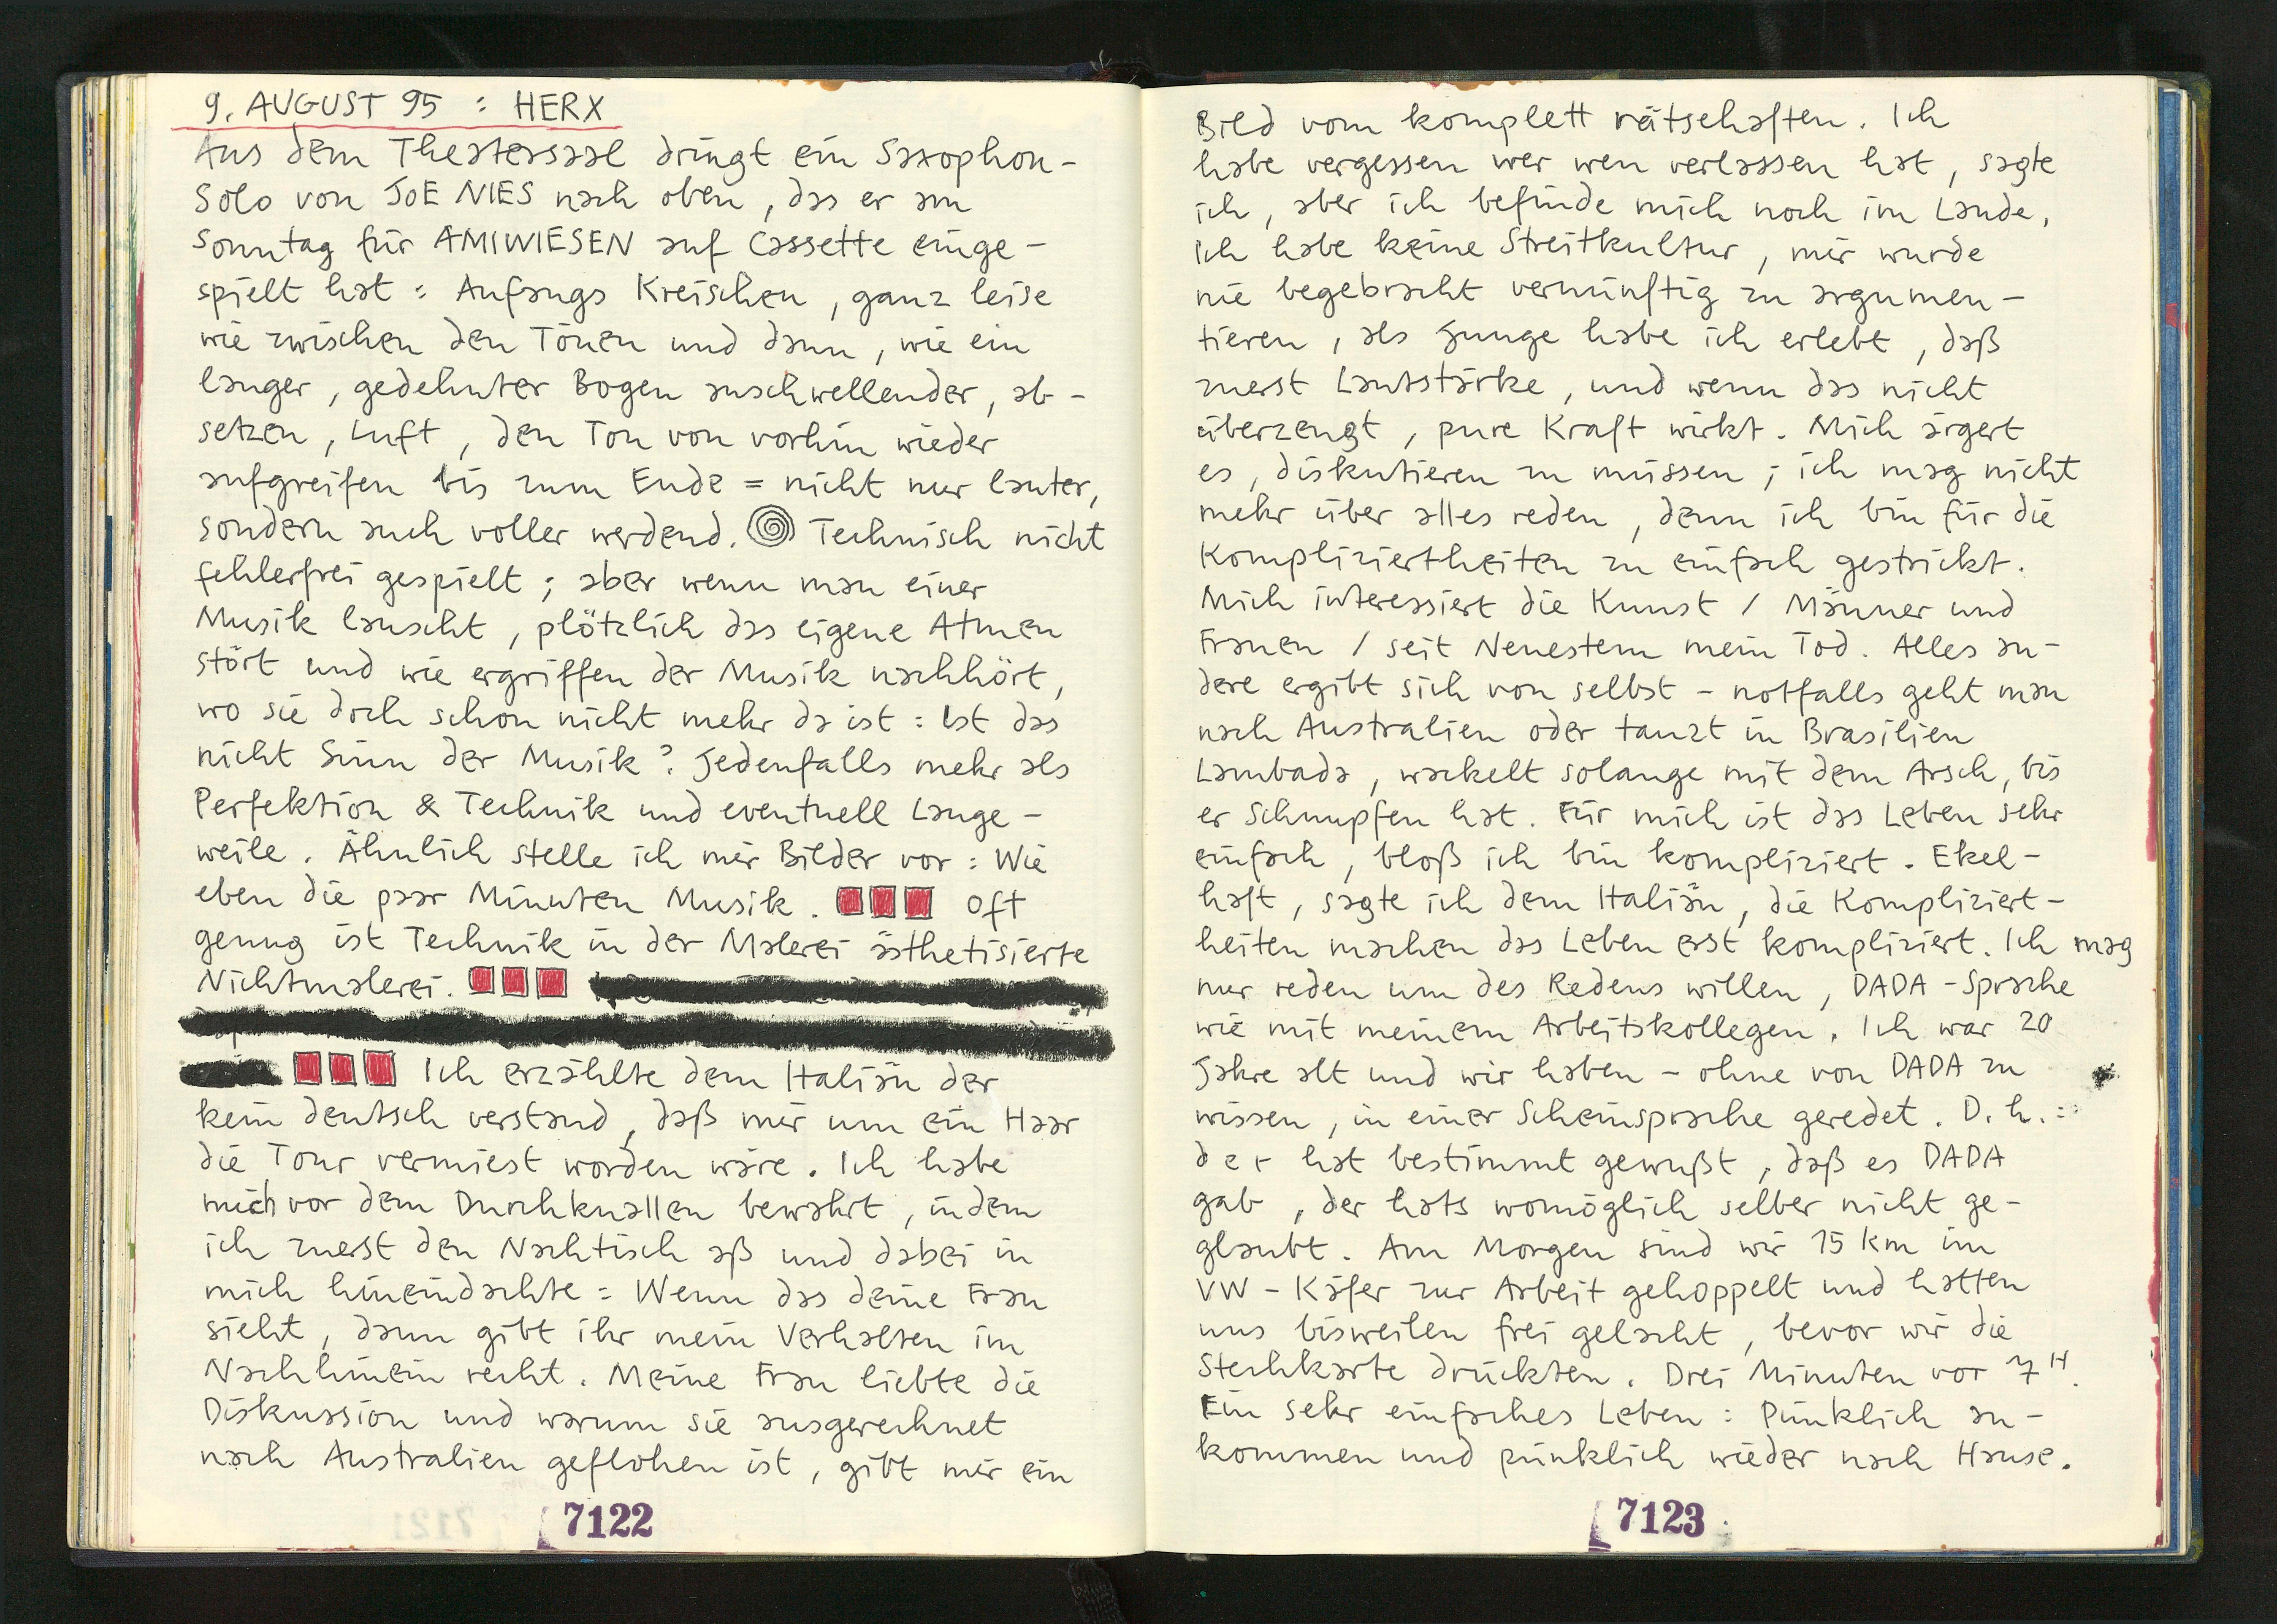 9. AUGUST 95 : HERX
Aus dem Theatersaal dringt ein Saxophon-
Solo von JOE NIES nach oben, das er am
Sonntag für AMIWIESEN auf Cassette einge-
spielt hat : Anfangs Kreischen, ganz leise
wie zwischen den Tönen und dann, wie ein
langer, gedehnter Bogen anschwellender, ab-
setzen, Luft, den Ton von vorhin wieder
aufgreifen bis zum Ende = nicht nur lauter,
sondern auch voller werdend. Technisch nicht
fehlerfrei gespielt ; aber wenn man einer
Musik lauscht, plötzlich das eigene Atmen
stört und wie ergriffen der Musik nachhört,
wo sie doch schon nicht mehr da ist : Ist das
nicht Sinn der Musik ? Jedenfalls mehr als
Perfektion & Technik und eventuell Lange-
weile. Ähnlich stelle ich mir Bilder vor : Wie
eben die paar Minuten Musik. Oft
genug ist Technik in der Malerei ästhetisierte
Nichtmalerei.
Ich erzählte dem Italiän der
kein deutsch verstand, daß mir um ein Haar
die Tour vermiest worden wäre. Ich habe
mich vor dem Durchknallen bewahrt, indem
ich zuerst den Nachtisch aß und dabei in
mich hineindachte = Wenn das deine Frau
sieht, dann gibt ihr mein Verhalten im
Nachhinein recht. Meine Frau liebte die
Diskussion und warum sie ausgerechnet
nach Australien geflohen ist, gibt mir ein
7122
Bild vom komplett rätsehaften. Ich
habe vergessen wer wen verlassen hat, sagte
ich, aber ich befinde mich noch im Lande,
Ich habe keine Streitkultur, mir wurde
nie begebracht vernünftig zu argumen-
tieren, als Junge habe ich erlebt, daß
zuerst Lautstärke, und wenn das nicht
überzeugt, pure Kraft wirkt. Mich ärgert
es, diskutieren zu müssen ; ich mag nicht
mehr über alles reden, denn ich bin für die
Kompliziertheiten zu einfach gestrickt.
Mich interessiert die Kunst / Männer und
Frauen / seit Neuestem mein Tod. Alles an-
dere ergibt sich von selbst - notfalls geht man
nach Australien oder tanzt in Brasilien
Lambada, wackelt solange mit dem Arsch, bis
er Schnupfen hat. Für mich ist das Leben sehr
einfach, bloß ich bin kompliziert. Ekel-
haft, sagte ich dem Italiän, die Kompliziert-
heiten machen das Leben erst kompliziert. Ich mag
nur reden um des Redens willen, DADA-Sprache
wie mit meinem Arbeitskollegen. Ich war 20
Jahre alt und wir haben - ohne von DADA zu
wissen, in einer Scheinsprache geredet. D. h. :
der hat bestimmt gewußt, daß es DADA
gab, der hats womöglich selber nicht ge-
glaubt. Am Morgen sind wir 15 km im
VW-Käfer zur Arbeit gehoppelt und hatten
uns bisweilen frei gelacht, bevor wir die
Stechkarte drückten. Drei Minuten vor 7 H.
Ein sehr einfaches Leben : Pünklich an-
kommen und pünklich wieder nach Hause.
7123